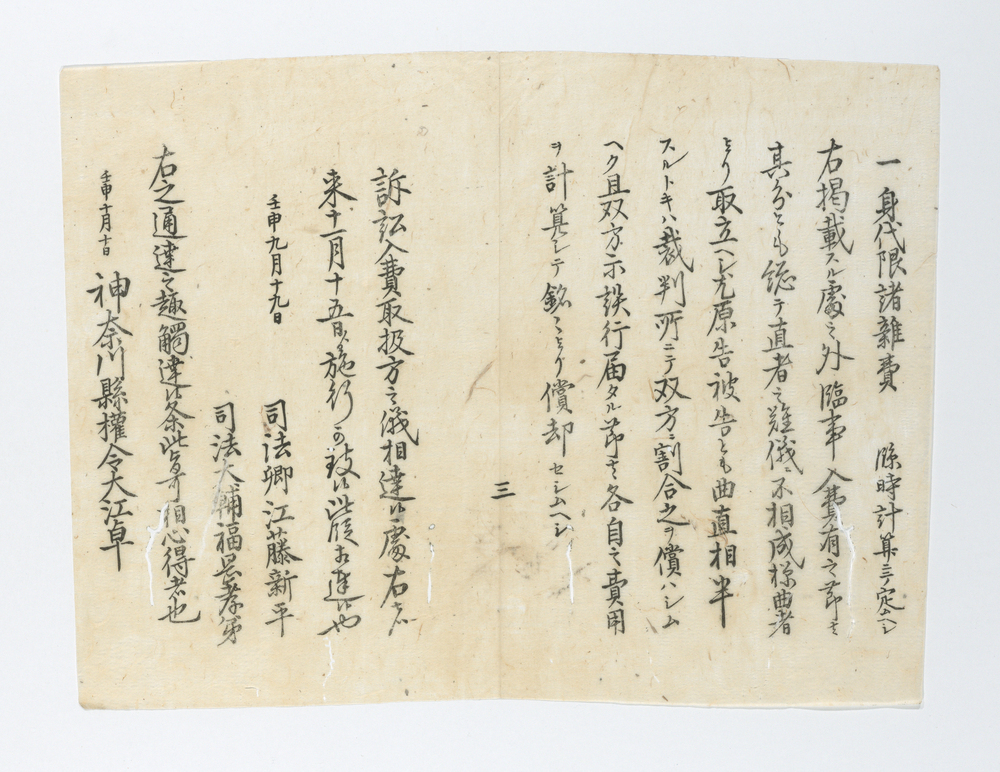 一 身代限諸雑費 臨時計算シテ定ムヘシ
右掲載スル處之外臨事入費有之節ハ
其分とも総テ直者之難儀ニ不相成様曲者
より取立ヘシ尤原告被告とも曲直相半
スルトキハ裁判所ニテ双方ニ割合之ヲ償ハシム
ヘク且双方示談行届タル節ハ各自之費用
ヲ計算シテ銘々より償却セシムヘシ
三
訴訟入費取扱方之儀相達候處右者
来十一月十五日施行可致候此段相達候也
壬申九月十九日
司法卿江藤新平
司法大輔福岡孝弟
右之通達之趣觸達候条此旨可相心得者也
壬申十月十日 神奈川縣權令大江卓